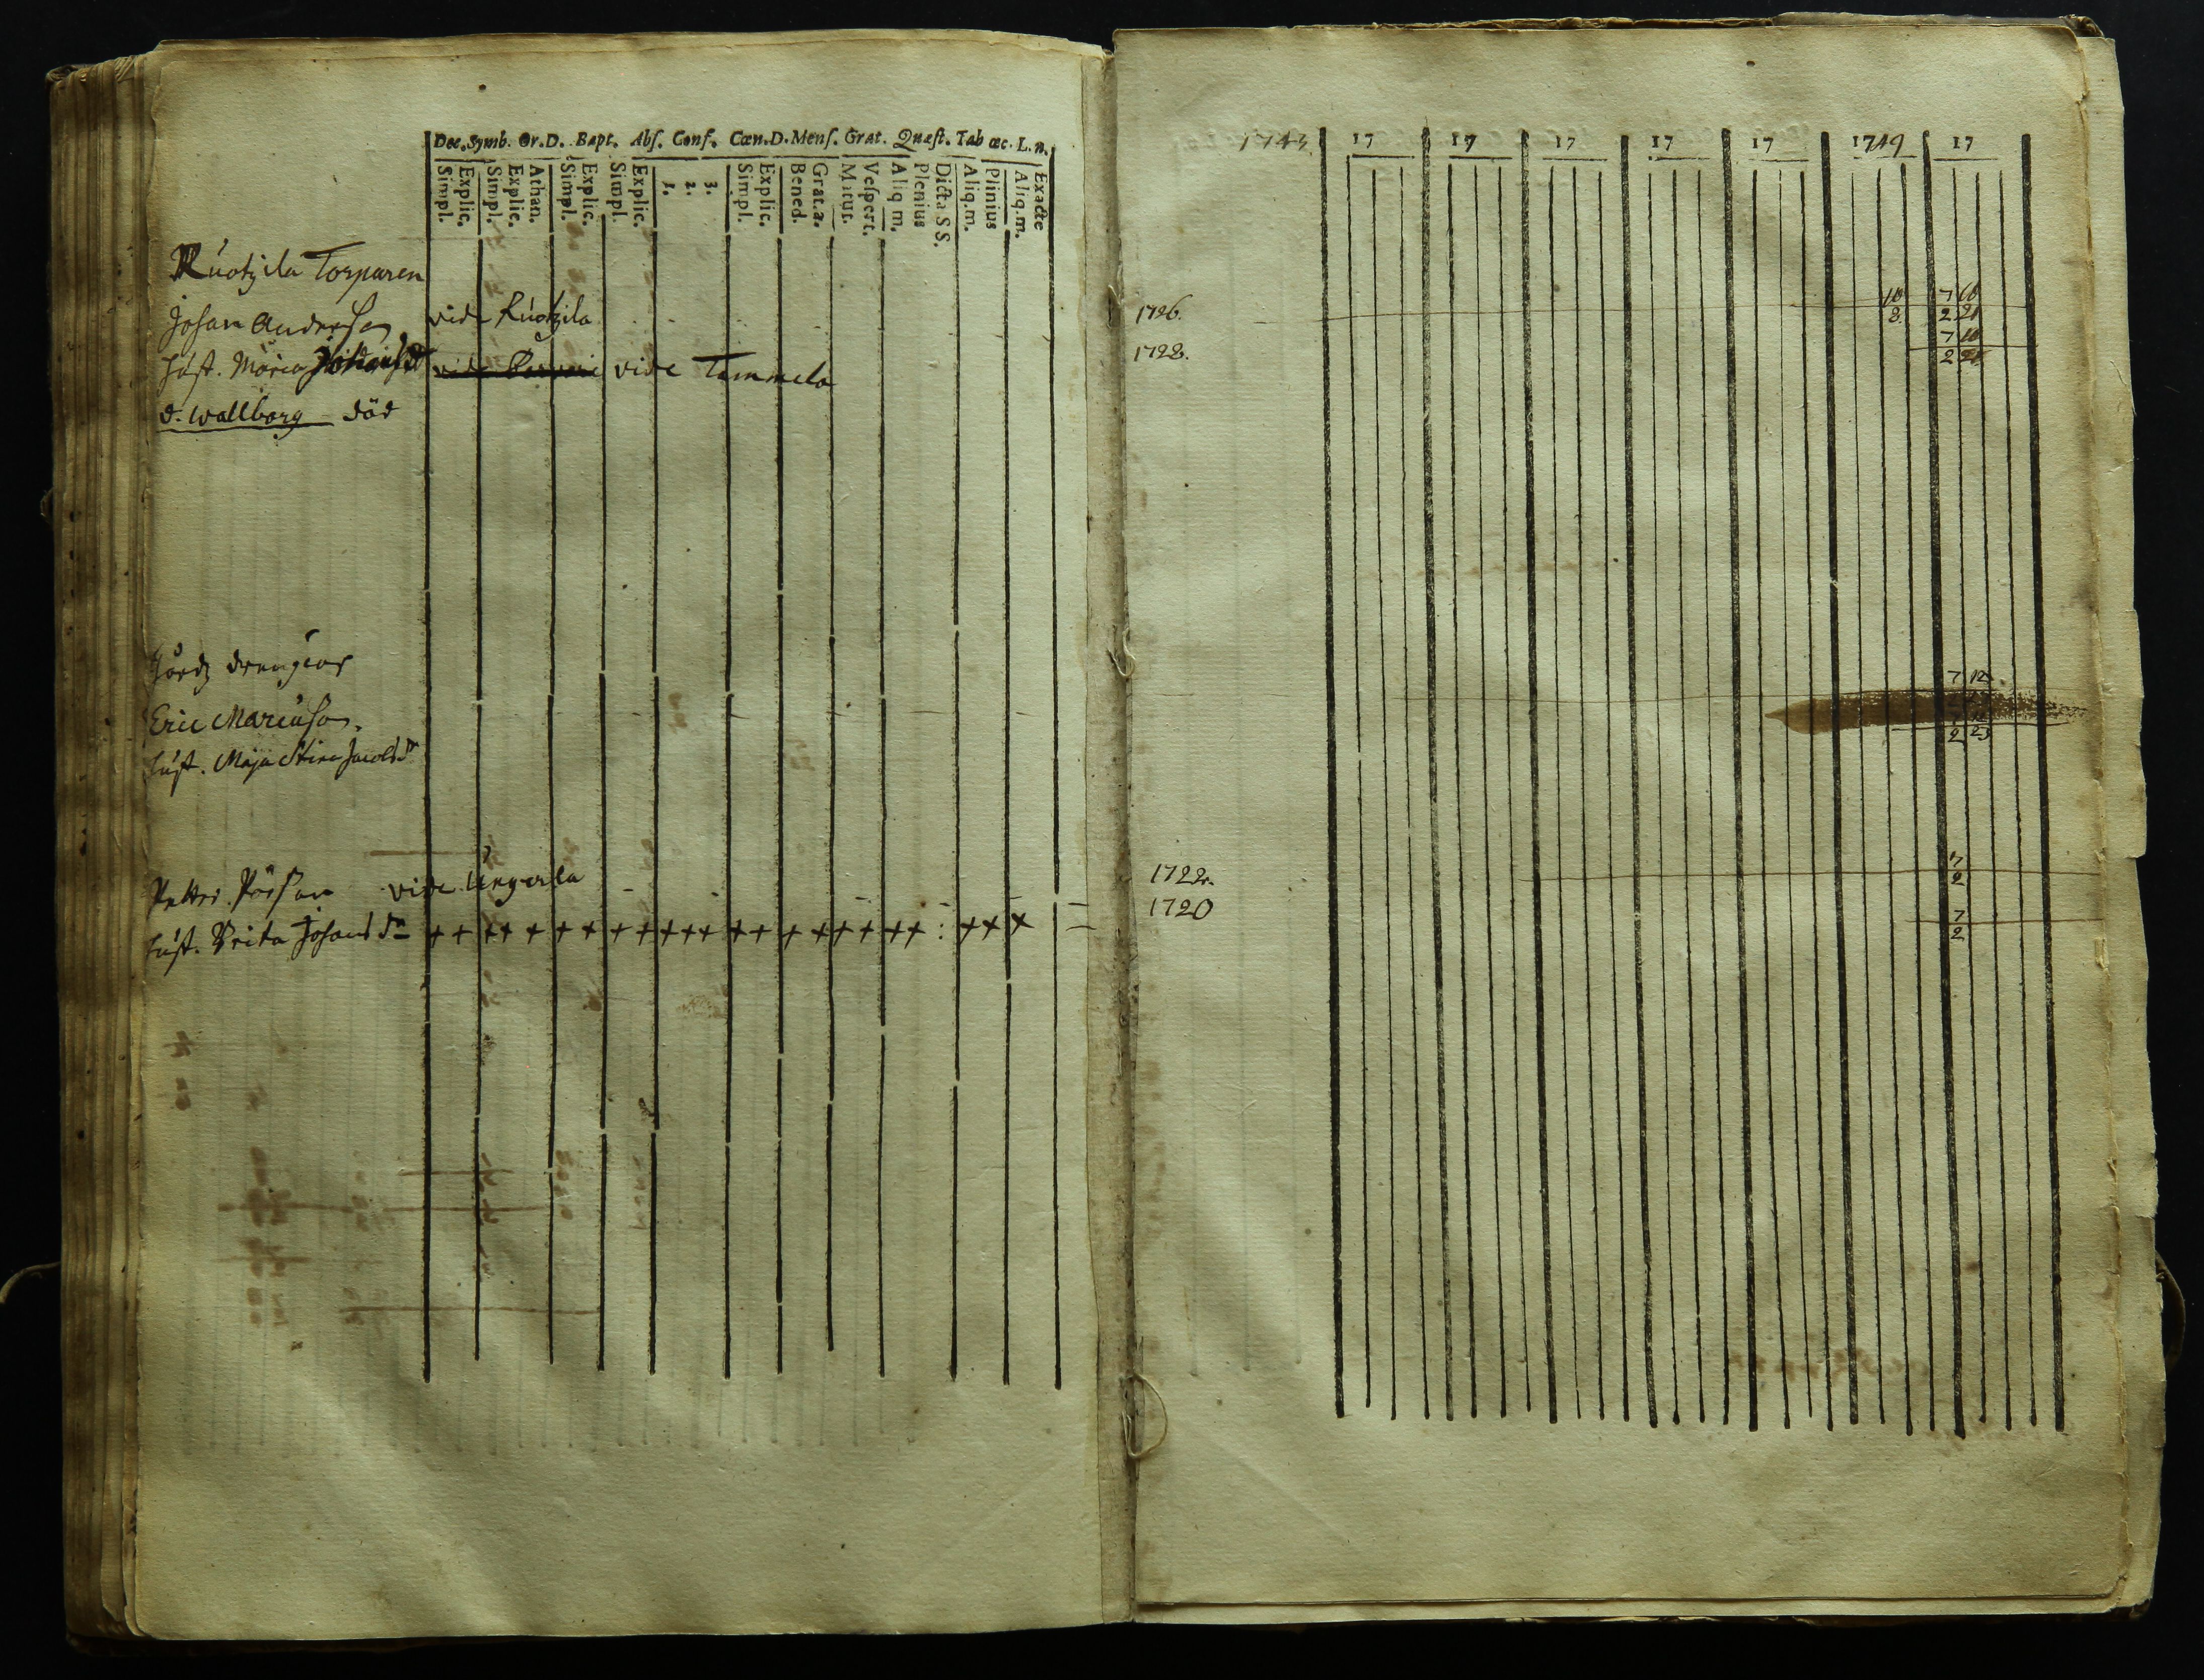 Dec. Symb. Or. D. Bapt. Abs. Conf. Cœn. D. Mens. Grat. Quæst. Tab œc. L. n.
Simpl. Explic. Simpl. Explic. Athan. Simpl. Explic. Simpl. Explic. 1. 2. 3. Simpl. Explic. Bened. Grat. a. Matut. Vespert. Aliq m. Plenius Dicta S S. Aliq. m. Plinius Aliq. m. Exacte
Ruotzila Torparen
Johan Andersson vide Ruotzila
hust. Maria vide Tammela
d. Wallborg död
Eric Marcusson.
hust. Maja Stina Jacobs dr
Petter vide Ungerla
hust. Brita Johans dr + + + + + + + + + + + + + + + + + + + + : + + +
1743 17 17 17 17 17 1749 17
1726. 10 8. 7 10 2 21
1728. 7 10 2 21
7 12
2 23
1722. 7 2
1720 7 2